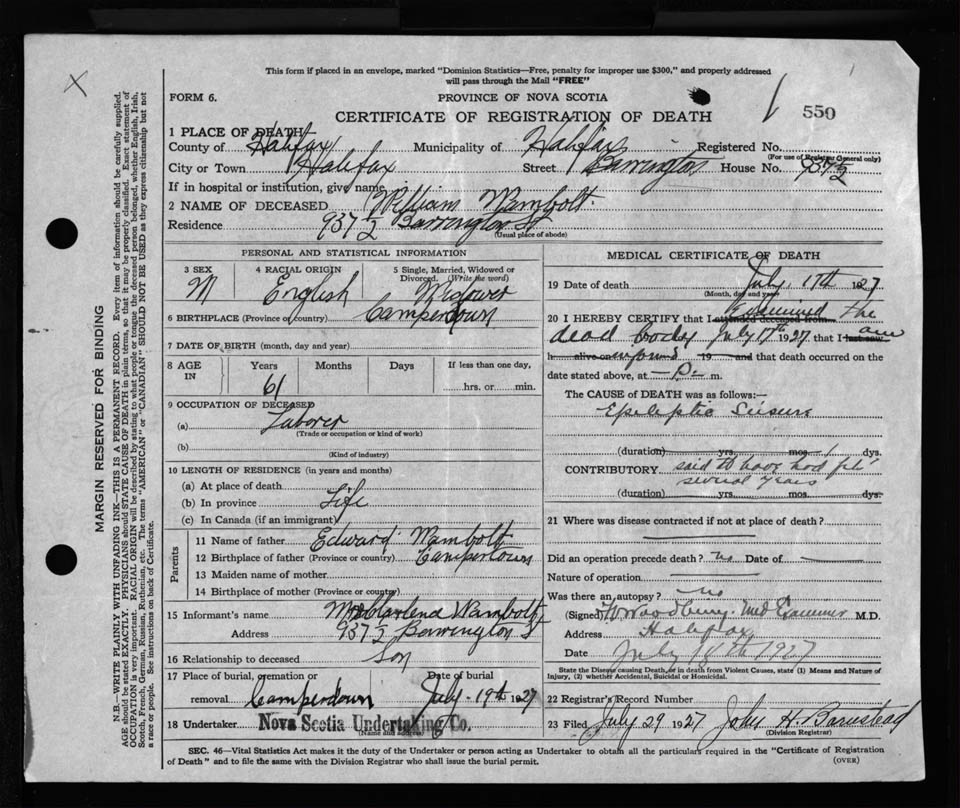 This form if placed in an envelope, marked "Dominion Statistics—Free, penalty for improper use $300," and properly addressed
will pass through the Mail "FREE"
FORM 6.
PROVINCE OF NOVA SCOTIA
CERTIFICATE OF REGISTRATION OF DEATH
550
1 PLACE OF DEATH
County of Halifax Municipality of Halifax Registered No.
(For use of Registrar General only)
City or Town Halifax Street Barrington House No. 937½
If in hospital or institution, give name
2 NAME OF DECEASED William Wambolt.
Residence 937½ Barrington St
(Usual place of abode)
PERSONAL AND STATISTICAL INFORMATION
3 SEX M
4 RACIAL ORIGIN English
5 Single, Married, Widowed or Divorced. (Write the word) Widower
6 BIRTHPLACE (Province or country) Camperdown
7 DATE OF BIRTH (month, day and year)
8 AGE IN Years 61 Months Days If less than one day,
hrs. or min.
9 OCCUPATION OF DECEASED
(a) Laborer
(Trade or occupation or kind of work)
(b)
(Kind of industry)
10 LENGTH OF RESIDENCE (in years and months)
(a) At place of death
(b) In province Life
(c) In Canada (if an immigrant)
Parents
11 Name of father Edward Wambolt
12 Birthplace of father (Province or country) Camperdown
13 Maiden name of mother
14 Birthplace of mother (Province or country)
15 Informant's name Wambolt
Address 937½ Barrington St
16 Relationship to deceased Son
17 Place of burial, cremation or removal Camperdown Date of burial July 19th 1927
18 Undertaker Nova Scotia Undertaking Co.
(Name and address)
MEDICAL CERTIFICATE OF DEATH
19 Date of death July 17th 1927
(Month, day and year)
20 I HEREBY CERTIFY that I attended deceased from examined the
dead body July 17th 1927 that I last saw am
h alive on informed 19 and that death occurred on the
date stated above, at — P — m.
The CAUSE OF DEATH was as follows:—
Epileptic Seisure
(duration) yrs. mos. 1 dys.
CONTRIBUTORY said to have had fits
several years
(duration) yrs. mos. dys.
21 Where was disease contracted if not at place of death?
Did an operation precede death? no Date of
Nature of operation
Was there an autopsy? no
(Signed) Woodbury Med Examiner M.D.
Address Halifax
Date July 18th 1927
State the Disease Causing Death, or in death from Violent Causes, state (1) Means and Nature of
Injury, (2) whether Accidental, Suicidal or Homicidal.
22 Registrar's Record Number
23 Filed July 29 1927 John H. Barnstead
(Division Registrar)
SEC. 46—Vital Statistics Act makes it the duty of the Undertaker or person acting as Undertaker to obtain all the particulars required in the "Certificate of Registration
of Death" and to file the same with the Division Registrar who shall issue the burial permit.
(OVER)
MARGIN RESERVED FOR BINDING
N.B.—WRITE PLAINLY WITH UNFADING INK—THIS IS A PERMANENT RECORD. Every item of information should be carefully supplied.
AGE should be stated EXACTLY. PHYSICIANS should STATE CAUSE OF DEATH in plain terms, so that it may be properly classified. Exact statement of
OCCUPATION is very important. RACIAL ORIGIN will be described by stating to what people or tongue the deceased person belonged, whether English, Irish,
Scotch, French, German, Russian, Ruthenian, etc. The terms "AMERICAN" or "CANADIAN" SHOULD NOT BE USED as they express citizenship but not
a race or people. See instructions on back of Certificate.